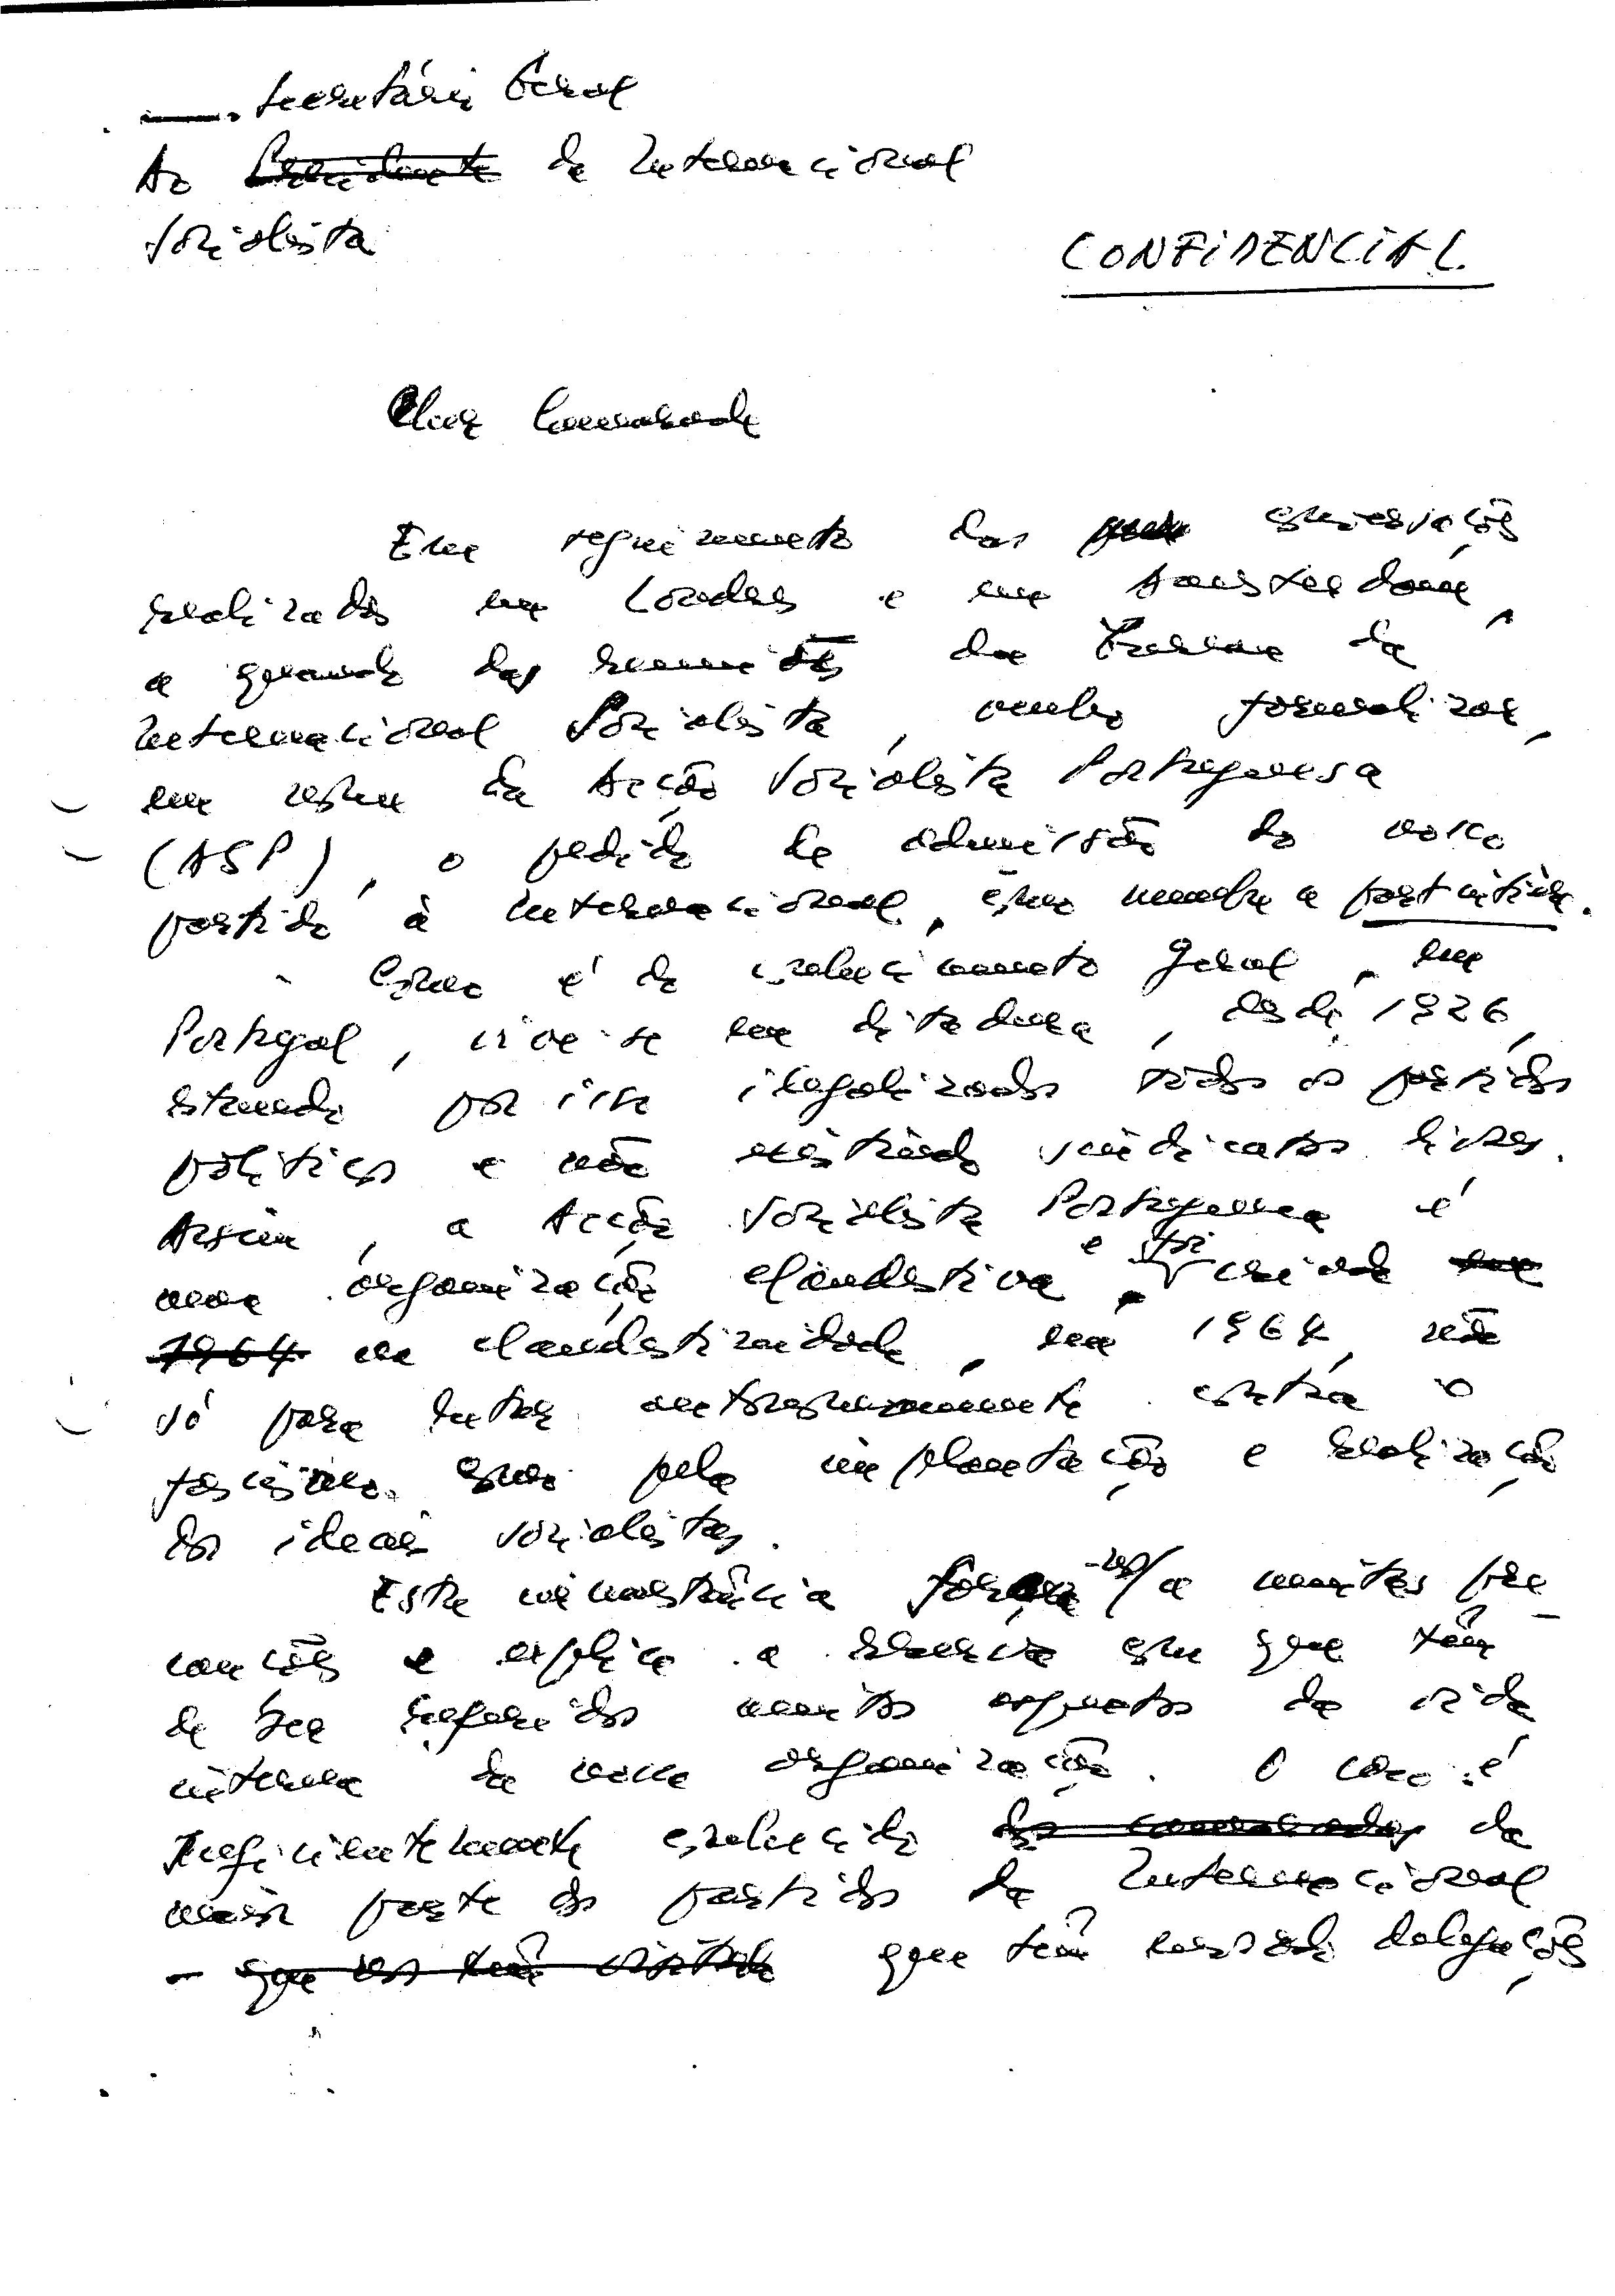 Secretário Geral
Ao Presidente da Internacional
Socialista
CONFIDENCIAL.
Caro Camarada
Em seguimento das conversações
realizadas em Londres e em Amsterdam,
a quando das reuniões do Bureau da
Internacional Socialista, venho formalizar,
em nome da Acção Socialista Portuguesa
(ASP), o pedido de admissão do nosso
partido à Internacional, como membro a part entière.
Como é do conhecimento geral, em
Portugal, vive-se em ditadura, desde 1926,
estando por isso ilegalizados todos os partidos
políticos e não existindo sindicatos livres.
Assim, a Acção Socialista Portuguesa é
uma organização clandestina e foi criada em
1964 na clandestinidade, em 1964, não
só para lutar contra o
fascismo como pela implantação e realização
dos ideais socialistas.
Esta circunstância força-nos a muitas pre
cauções e explica a reserva com que têm
de ser referidos muitos aspectos da vida
interna da nossa organização. O caso é
suficientemente conhecido dos camaradas da
maior parte dos partidos da Internacional
- que nos têm visitado que têm enviado delegações